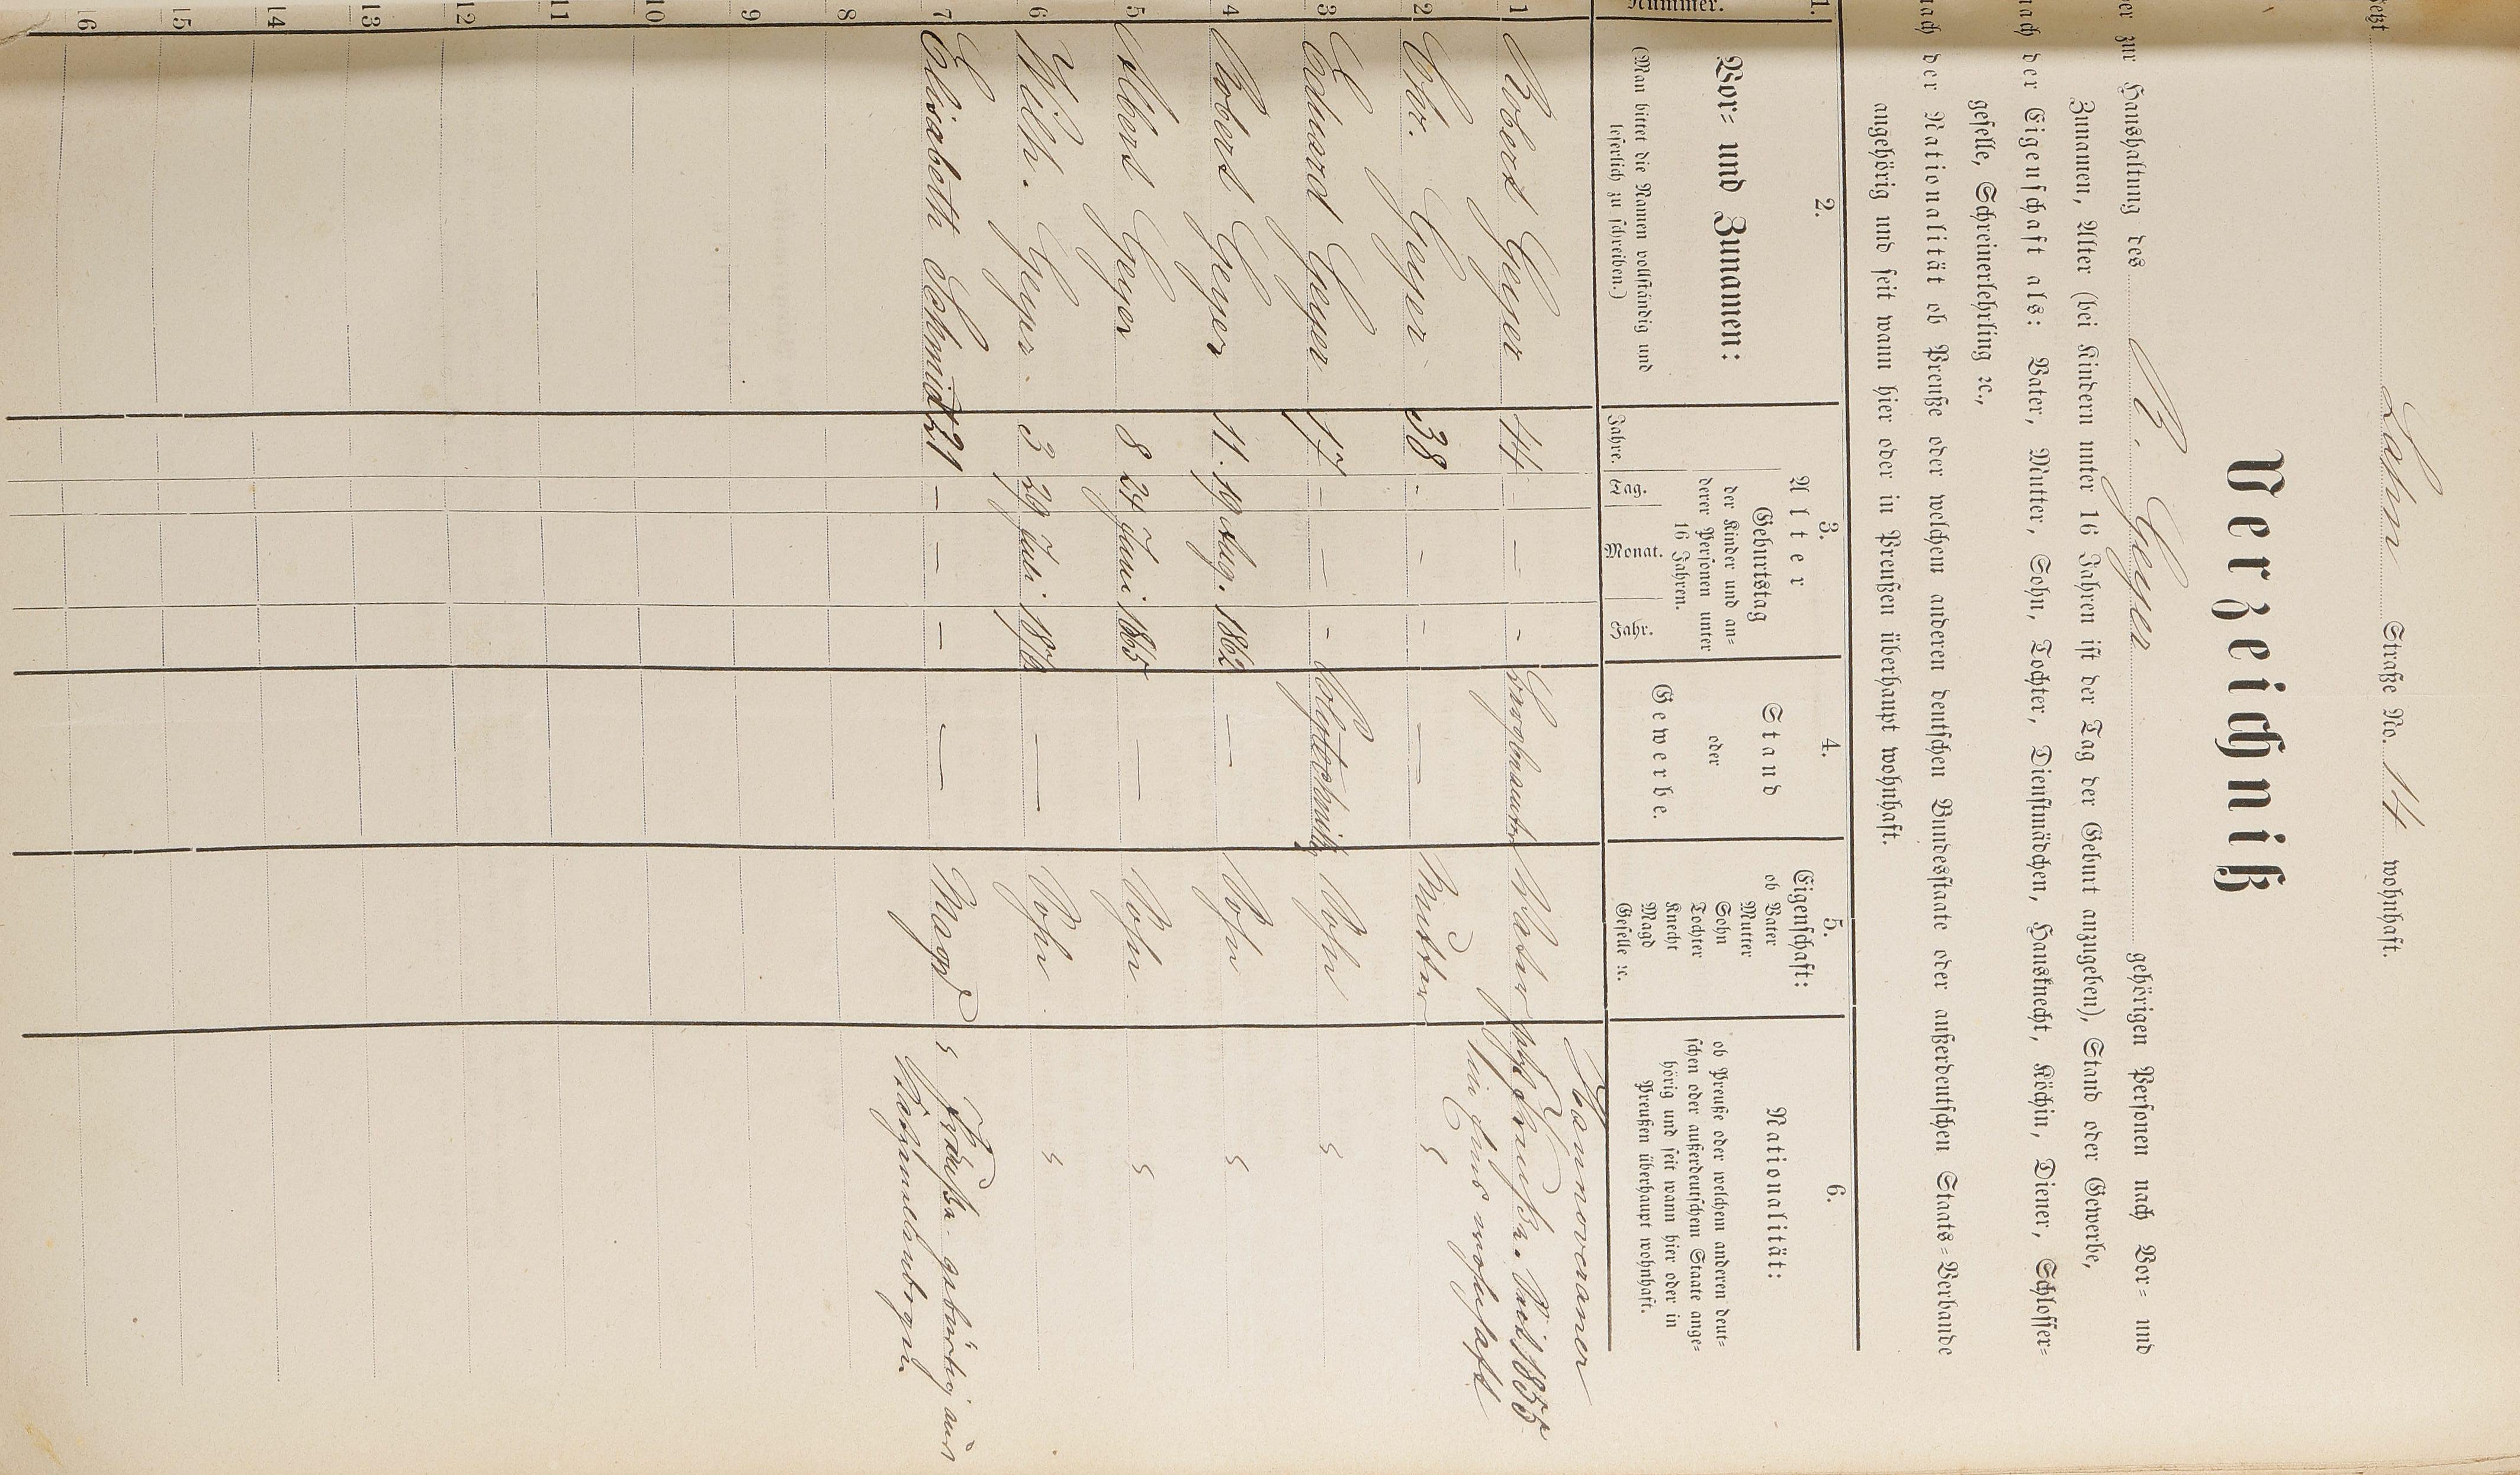 jetzt Lahn Straße No. 14 wohnhaft.
Verzeichniß
der zur Haushaltung des R. Geyer gehörigen Personen nach Vor= und
Zunamen, Alter (bei Kindern unter 16 Jahren ist der Tag der Geburt anzugeben), Stand oder Gewerbe,
nach der Eigenschaft als: Vater, Mutter, Sohn, Tochter, Dienstmädchen, Hausknecht, Köchin, Diener, Schlosser=
geselle, Schreinerlehrling ꝛc.,
nach der Nationalität ob Preuße oder welchem anderen deutschen Bundesstaate oder außerdeutschen Staats=Verbande
angehörig und seit wann hier oder in Preußen überhaupt wohnhaft.
1. 2. 3. 4. 5. 6.
Nummer.
Vor= und Zunamen:
(Man bittet die Namen vollständig und
leserlich zu schreiben.)
Alter
Geburtstag
der Kinder und an=
derer Personen unter
16 Jahren.
Jahre. Tag. Monat. Jahr.
Stand
oder
Gewerbe.
Eigenschaft:
ob Vater
Mutter
Sohn
Tochter
Knecht
Magd
Geselle ꝛc.
Nationalität:
ob Preuße oder welchem anderen deut=
schen oder außerdeutschem Staate ange=
hörig und seit wann hier oder in
Preußen überhaupt wohnhaft.
Hannoveraner
1 Robert Geyer 44 - - - Vater jetzt Preuße. Seit 1855
in Ems wohnhaft
2 Chr. Geyer 38 - - - — Mutter "
3 Eduard Geyer 17 - - - Sohn "
4 Robert Geyer 11. 19 Aug. 1862 — Sohn "
5 Albert Geyer 8 24 Juni 1865 — Sohn "
6 Wilh. Geyer 3 29 Juli 1870 — Sohn "
7 Elisabeth Schmidt 21 - - - — Magd " Preuße gebürtig aus
8
9
10
11
12
13
14
15
16